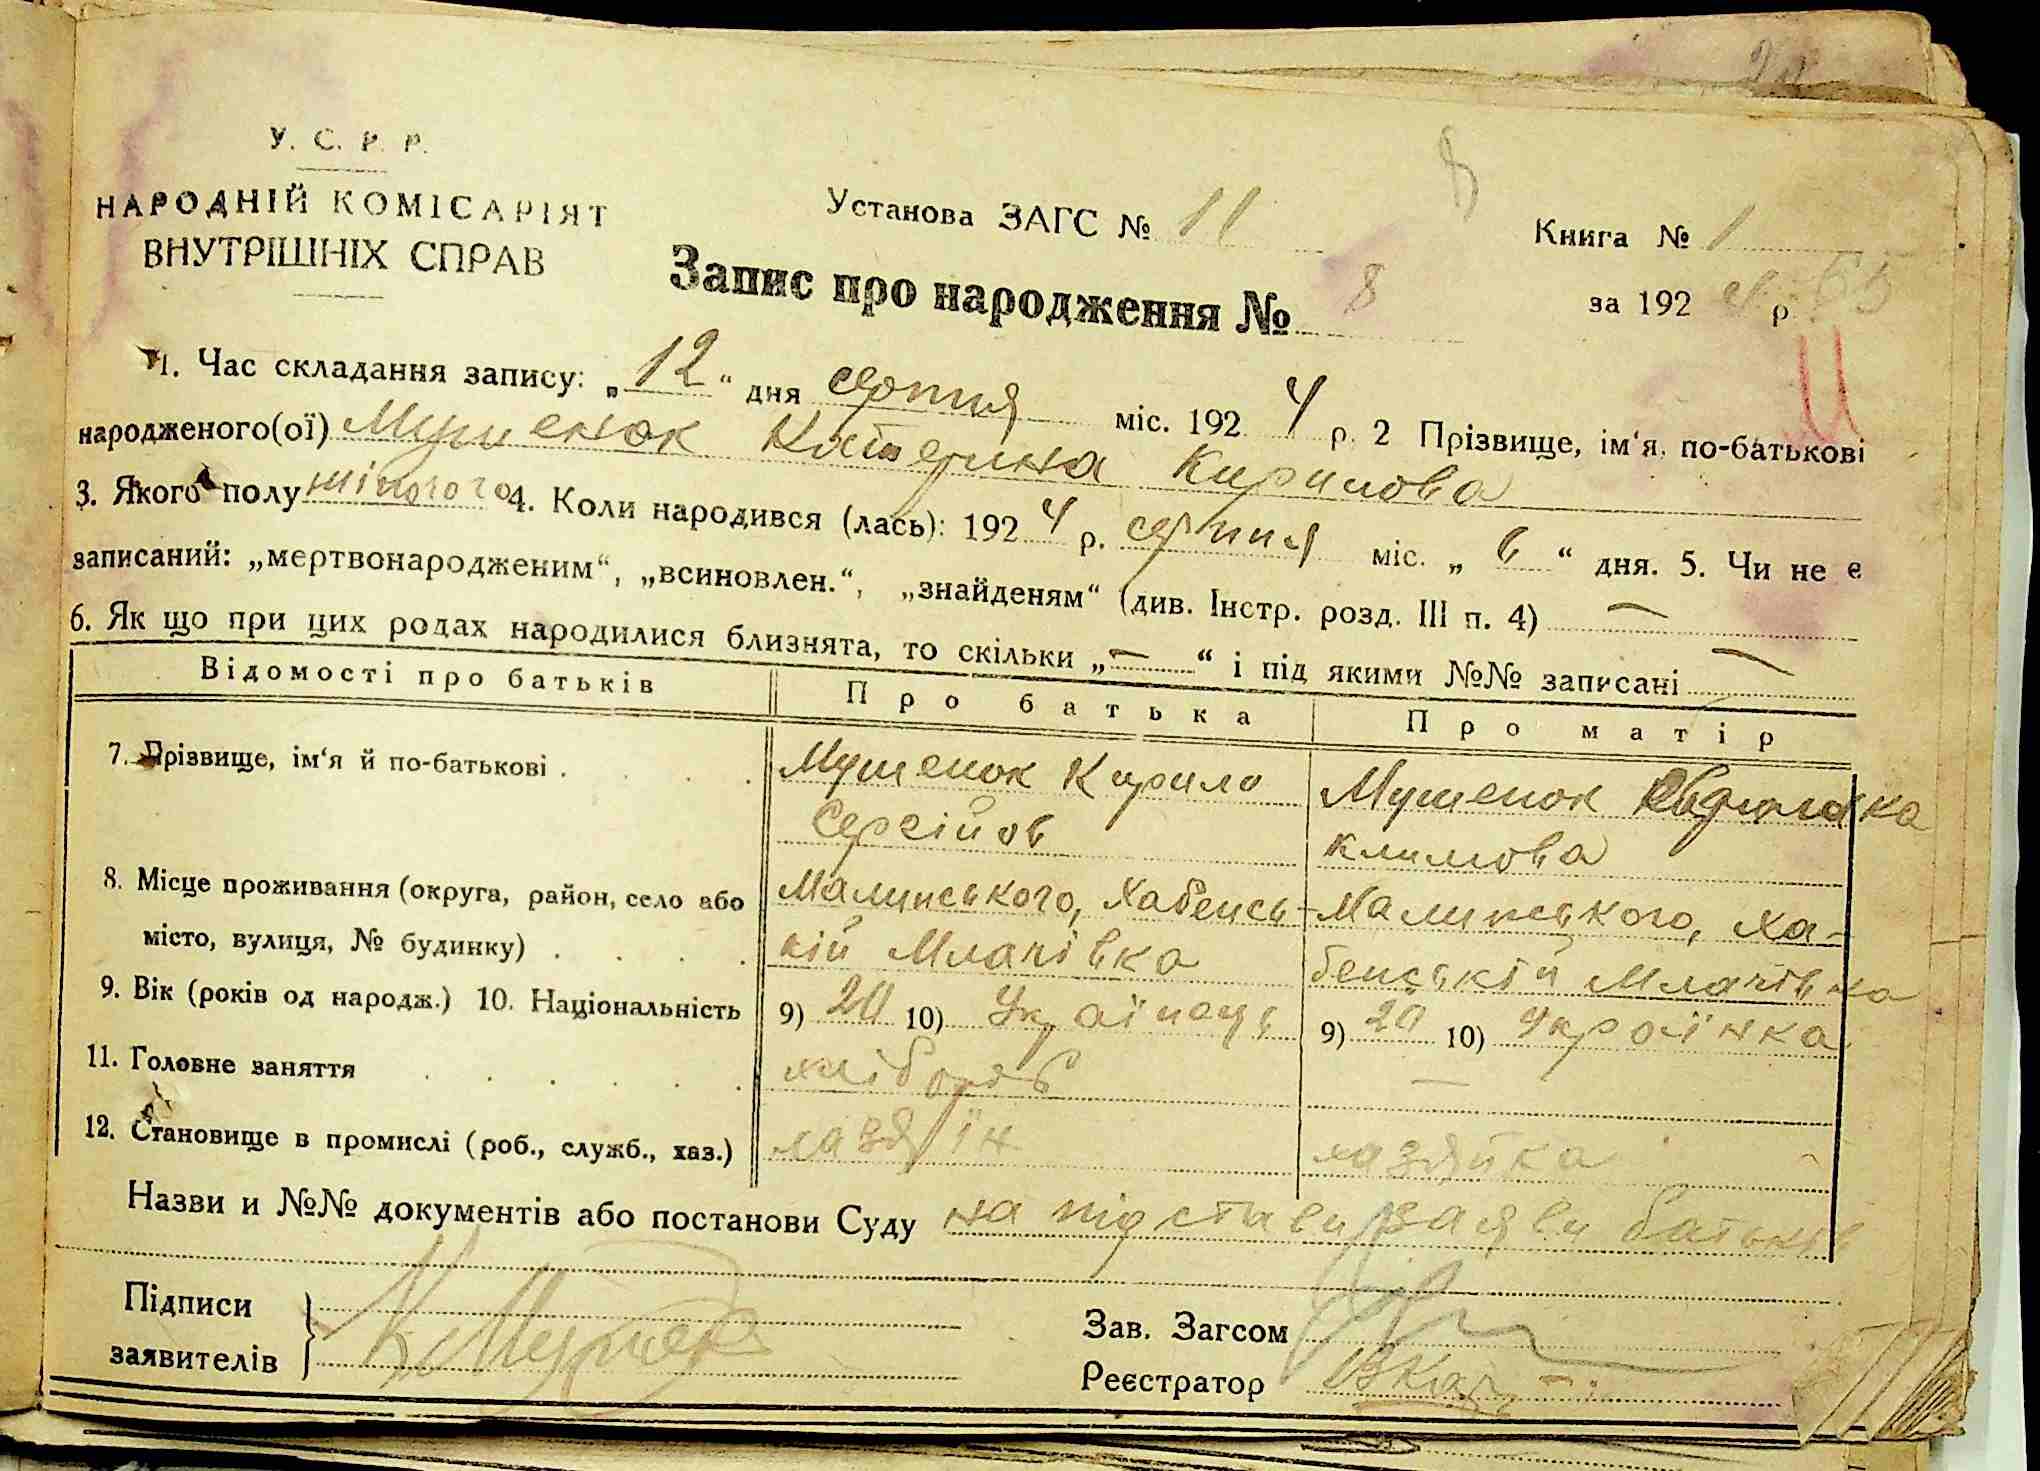 У. С. Р. Р.
НАРОДНІЙ КОМІСАРІЯТ
ВНУТРІШНІХ СПРАВ
Установа ЗАГС № 11
Книга № 1
Запис про народження № 8
за 1924 р. 65
1. Час складання запису: „12“ дня серпня міс. 1924 р. 2 Прізвище, ім‘я, по-батькові
народженого(ої) Мушенок Катерина Кирилова
3. Якого полу жіночого 4. Коли народився (лась): 1924 р. серпня міс. „6“ дня. 5. Чи не є
записаний: „мертвонародженим“, „всиновлен.“, „знайденям“ (див. Інстр. розд. III п. 4) —
6. Як що при цих родах народилися близнята, то скільки „—“ і під якими №№ записані —
Відомості про батьків Про батька Про матір
7. Прізвище, ім‘я й по-батькові . Мушенок Кирило Мушенок
Сергійов Климова
8. Місце проживання (округа, район, село або Малинського, Хабенсь- Малинського, Ха-
місто, вулиця, № будинку) . кій Млачівка бенській Млачівка
9. Вік (років од народж.) 10. Національність 9) 20 10) Українець 9) 20 10) Українка
11. Головне заняття хлібороб —
12. Становище в промислі (роб., служб., хаз.) хазяїн хазяйка
Назви и №№ документів або постанови Суду на підставі заяви батьків
Підписи
заявителів К Мушенок
Зав. Загсом
Реєстратор